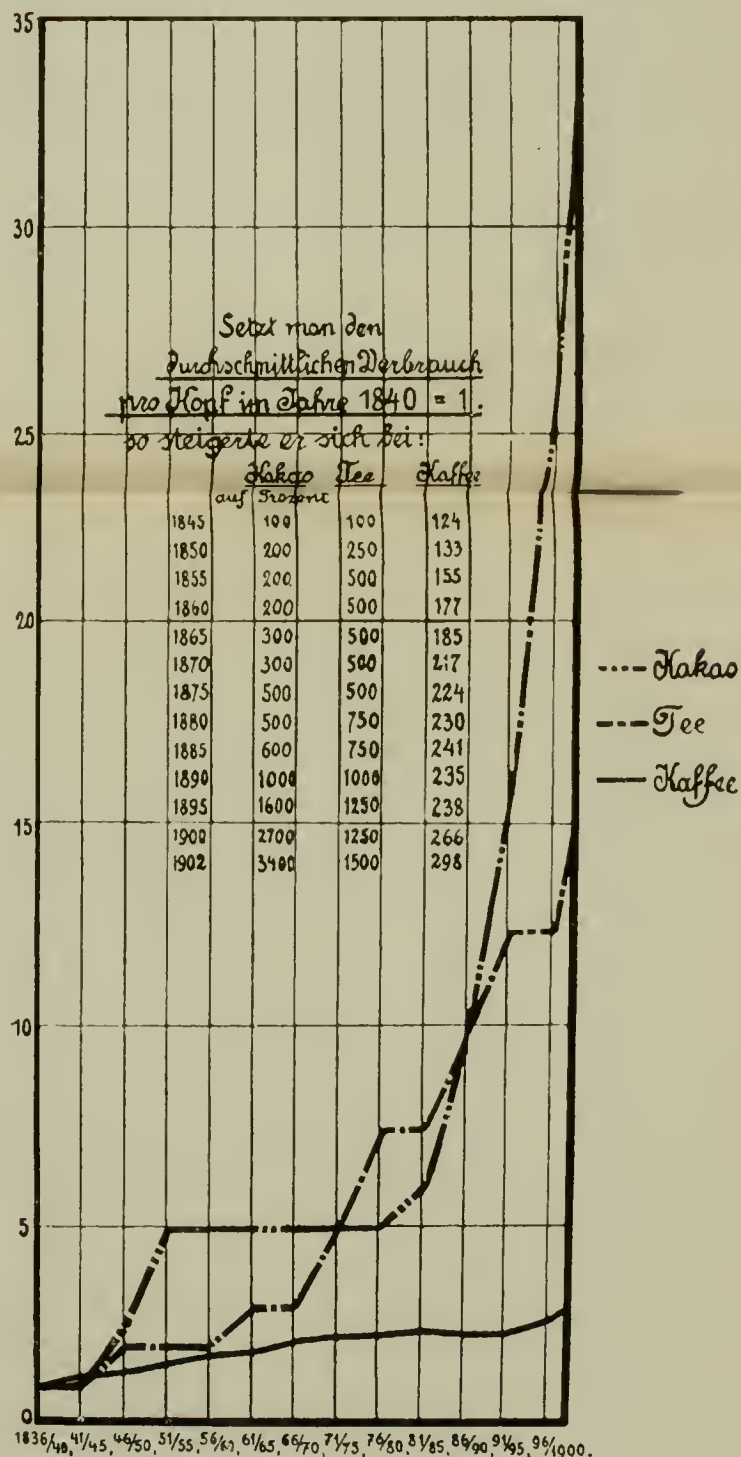 35
30
25
20
15
10
5
0
Setzt man den
durchschnittlichen Verbrauch
pro Kopf im Jahre 1840 = 1.
so steigerte er sich bei:
Kakao Tee Kaffee
auf Prozent
1845 100 100 124
1850 200 250 133
1855 200 500 155
1860 200 500 177
1865 300 500 185
1870 300 500 217
1875 500 500 224
1880 500 750 230
1885 600 750 241
1890 1000 1000 235
1895 1600 1250 238
1900 2700 1250 266
1902 3400 1500 298
Kakao
Tee
Kaffee
1836/40, 41/45, 46/50, 51/55, 56/60, 61/65, 66/70, 71/75, 76/80, 81/85, 86/90, 91/95, 96/1000.